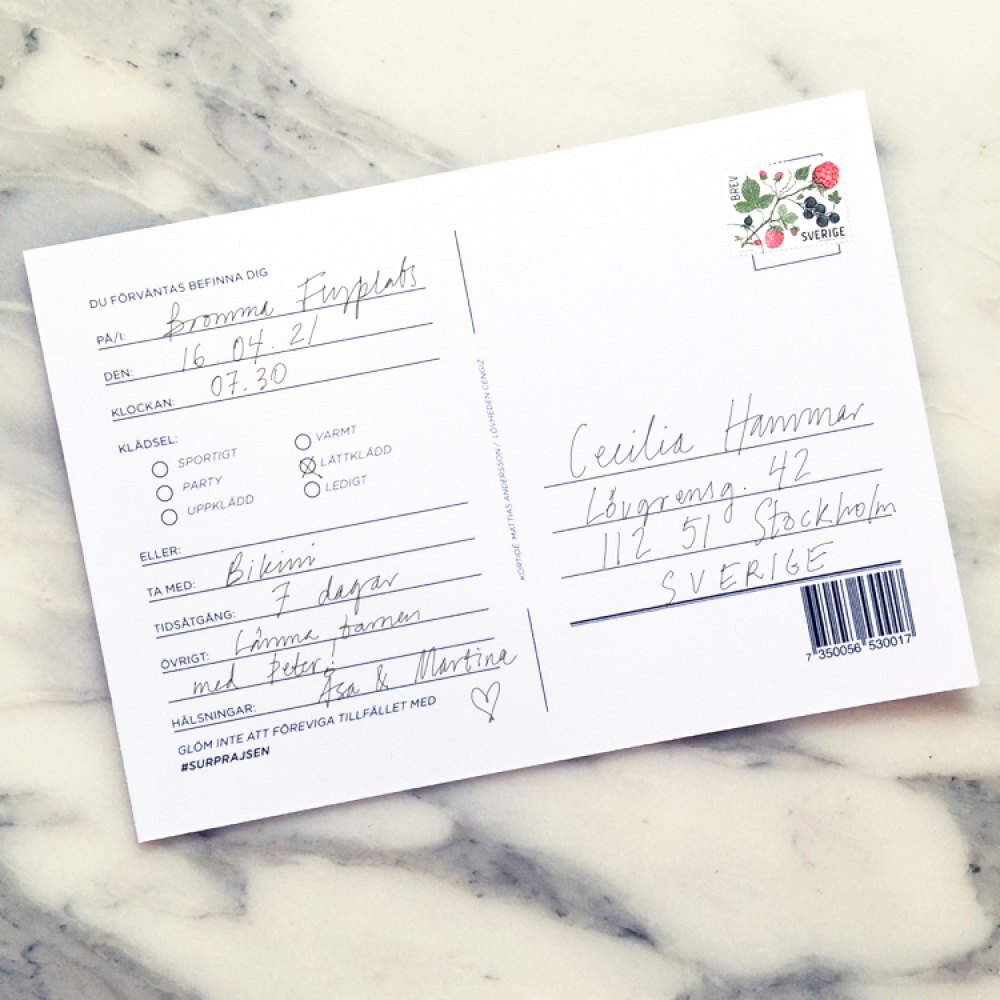 DU FÖRVÄNTAS BEFINNA DIG
PÅ/I: Bromma Flygplats
DEN: 16.04.21
KLOCKAN: 07.30
KLÄDSEL:
SPORTIGT
PARTY
UPPKLÄDD
VARMT
LÄTTKLÄDD
LEDIGT
ELLER:
TA MED: Bikini
TIDSÅTGÅNG: 7 dagar
ÖVRIGT: Lämna barnen
med Peter!
HÄLSNINGAR: Åsa & Martina
GLÖM INTE ATT FÖREVIGA TILLFÄLLET MED
#SURPRAJSEN
KORTIDÉ: MATTIAS ANDERSSON / LÖVHEDEN CENGIZ
BREV
SVERIGE
Cecilia Hammar
Lövgrensg. 42
112 51 Stockholm
SVERIGE
7 350056 530017